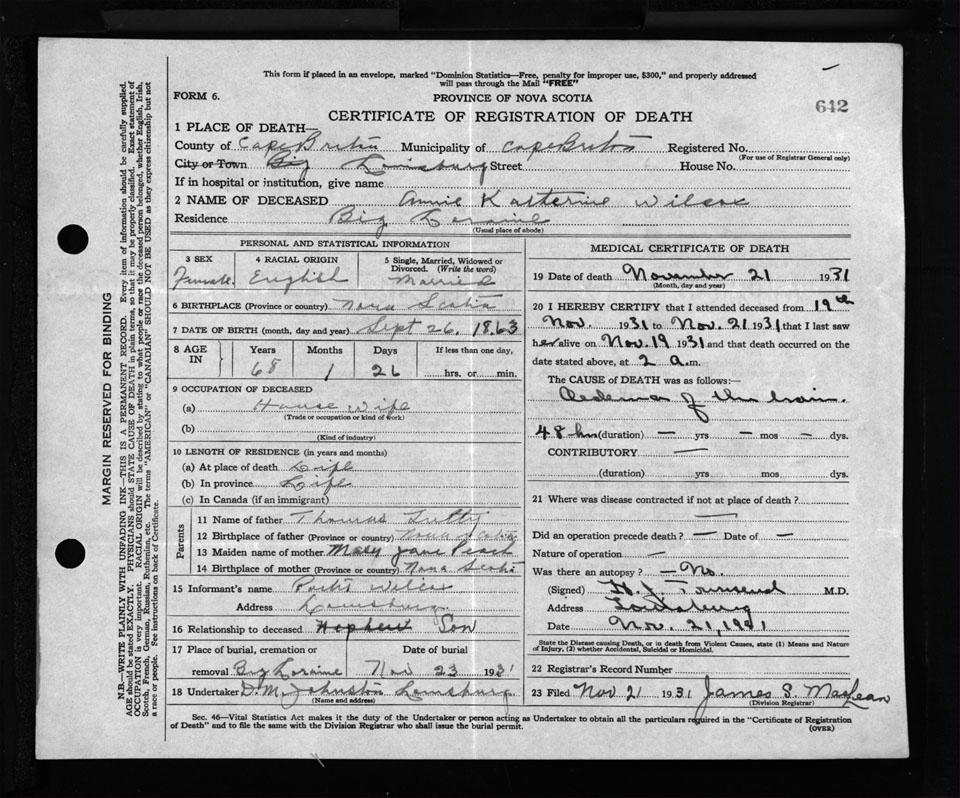 This form if placed in an envelope, marked "Dominion Statistics—Free, penalty for improper use, $300," and properly addressed
will pass through the Mail "FREE"
642
FORM 6.
PROVINCE OF NOVA SCOTIA
CERTIFICATE OF REGISTRATION OF DEATH
1 PLACE OF DEATH—
County of Cape Breton Municipality of Cape Breton Registered No.
(For use of Registrar General only)
City or Town Big Louisburg Street House No.
If in hospital or institution, give name
2 NAME OF DECEASED Annie Katherine Wilcox
Residence Big Loraine
(Usual place of abode)
PERSONAL AND STATISTICAL INFORMATION
3 SEX 4 RACIAL ORIGIN 5 Single, Married, Widowed or
Divorced. (Write the word)
Female. English Married
6 BIRTHPLACE (Province or country) Nova Scotia
7 DATE OF BIRTH (month, day and year) Sept 26. 1863
8 AGE IN Years Months Days If less than one day,
68 1 26 hrs. or min.
9 OCCUPATION OF DECEASED
(a) House Wife
(Trade or occupation or kind of work)
(b)
(Kind of industry)
10 LENGTH OF RESIDENCE (in years and months)
(a) At place of death Life
(b) In province Life
(c) In Canada (if an immigrant)
Parents
11 Name of father Thomas Tutty
12 Birthplace of father (Province or country) Nova Scotia
13 Maiden name of mother Mary Jane
14 Birthplace of mother (Province or country) Nova Scotia
15 Informant's name Wilcox
Address Louisburg.
16 Relationship to deceased Nephew Son
17 Place of burial, cremation or Date of burial
removal Big Loraine Nov 23 1931
18 Undertaker D. M. Johnston Louisburg
(Name and address)
MEDICAL CERTIFICATE OF DEATH
19 Date of death November 21 1931
(Month, day and year)
20 I HEREBY CERTIFY that I attended deceased from 19th
Nov. 1931 to Nov. 21 1931 that I last saw
her alive on Nov. 19 1931 and that death occurred on the
date stated above, at 2 a.m.
The CAUSE of DEATH was as follows:—
Oedema of the brain.
48 hrs (duration) — yrs — mos — dys.
CONTRIBUTORY —
(duration) yrs mos dys.
21 Where was disease contracted if not at place of death?
—
Did an operation precede death? — Date of —
Nature of operation —
Was there an autopsy? — No.
(Signed) H. J. Townsend M.D.
Address Louisburg
Date Nov. 21, 1931
State the Disease causing Death, or in death from Violent Causes, state (1) Means and Nature
of Injury, (2) whether Accidental, Suicidal or Homicidal.
22 Registrar's Record Number
23 Filed Nov 21 1931 James S. MacLean
(Division Registrar)
Sec. 46—Vital Statistics Act makes it the duty of the Undertaker or person acting as Undertaker to obtain all the particulars required in the "Certificate of Registration
of Death" and to file the same with the Division Registrar who shall issue the burial permit.
(OVER)
MARGIN RESERVED FOR BINDING
N.B.—WRITE PLAINLY WITH UNFADING INK—THIS IS A PERMANENT RECORD. Every item of information should be carefully supplied.
AGE should be stated EXACTLY. PHYSICIANS should STATE CAUSE OF DEATH in plain terms, so that it may be properly classified. Exact statement of
OCCUPATION is very important. RACIAL ORIGIN will be described by stating to what people or race the deceased person belonged, whether English, Irish,
Scotch, French, German, Russian, Ruthenian, etc. The terms "AMERICAN" or "CANADIAN" SHOULD NOT BE USED as they express citizenship but not
a race or people. See instructions on back of Certificate.